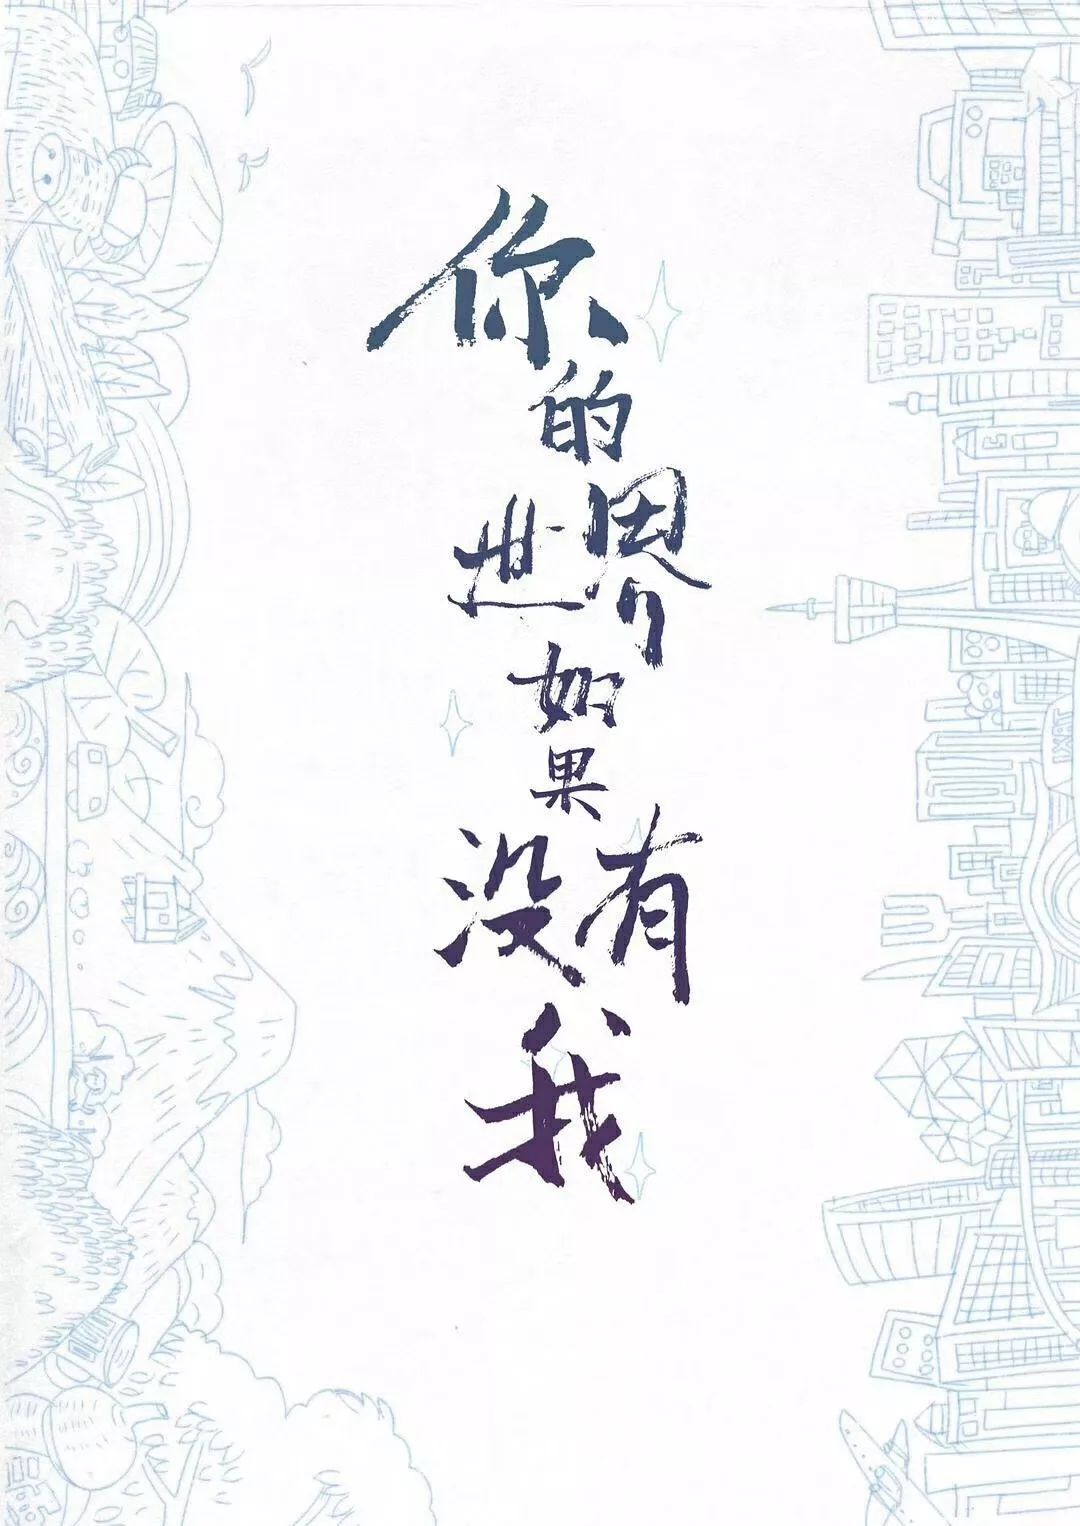 你的世界如果没有我
TAXI